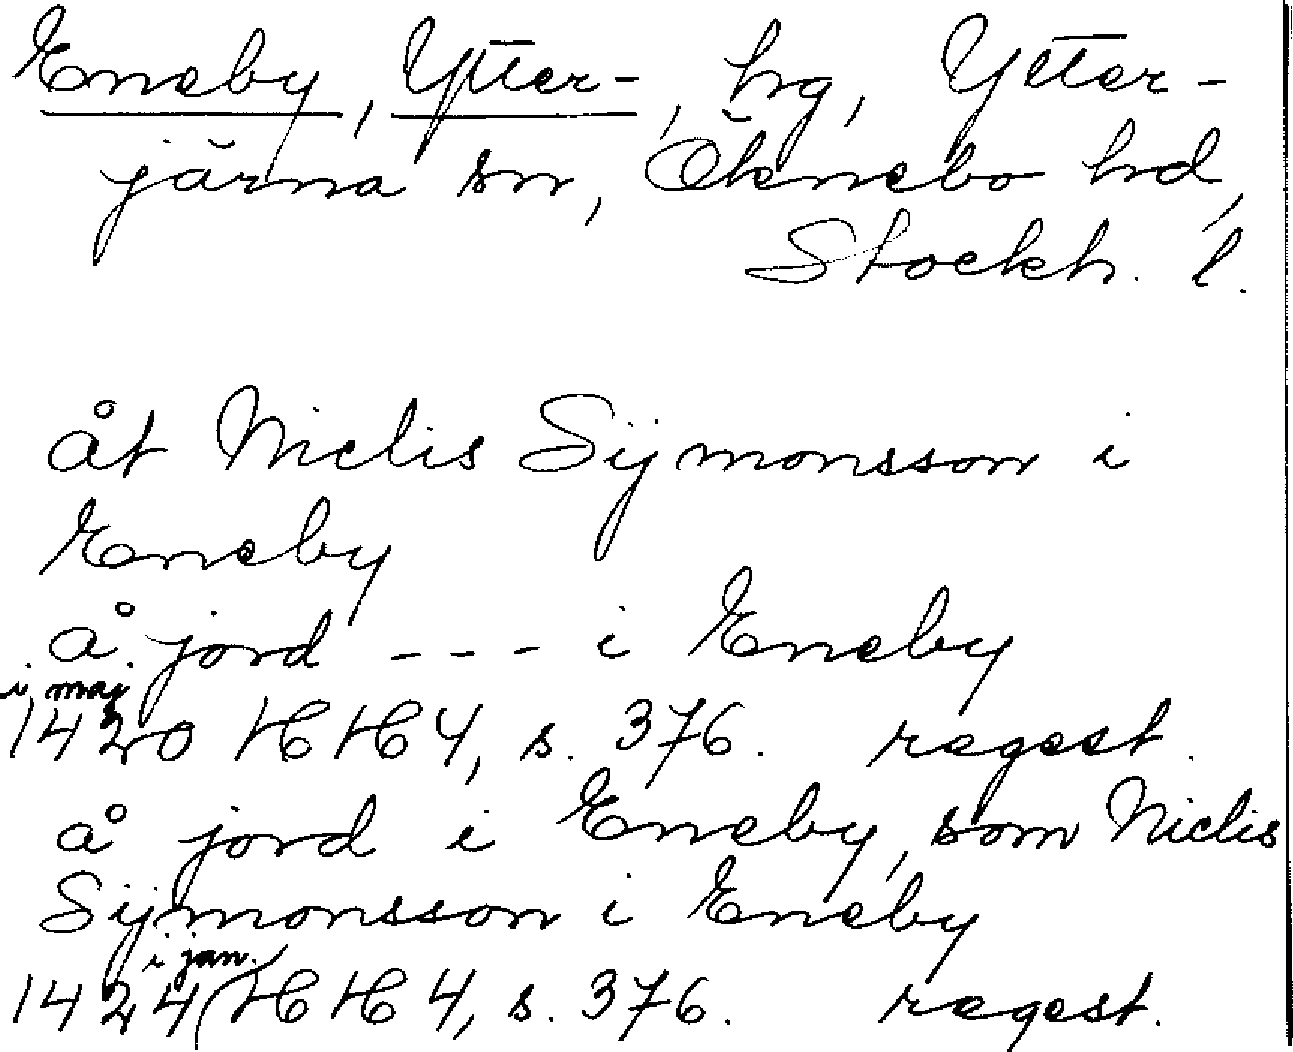 Eneby, Ytter-, hg, Ytter-
järna sn, Öknebo hd,
Stockh. l.
åt Niclis Sijmonsson i
Eneby
å jord --- i Eneby
i maj
1420 HH 4, s. 376. regest.
å jord i Eneby, som Niclis
Sijmonsson i Eneby
i jan.
1424 HH 4, s. 376. regest.